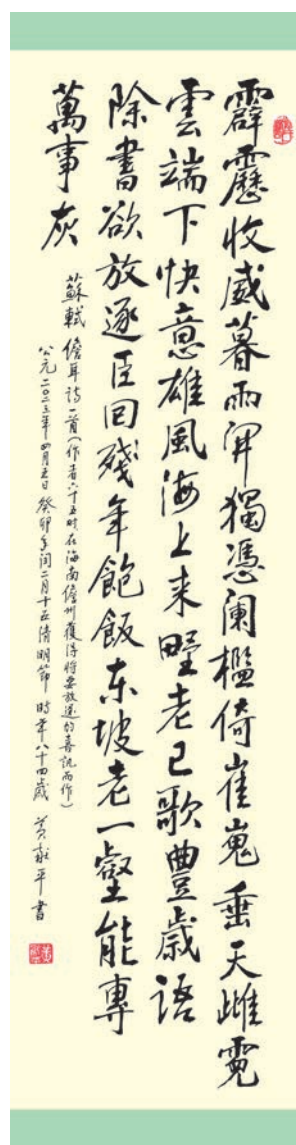 霹靂收威暮雨开獨憑阑檻倚崔嵬垂天雌霓
雲端下快意雄風海上来野老已歌豐歲語
除書欲放逐臣回殘年飽飯东坡老一壑能專
萬事灰
蘇軾 儋耳詩一首(作者六十五时在海南儋州獲得将要放还的喜訊而作)
公元二〇二三年四月五日癸卯年闰二月十五清明節 時年八十四歲 黃 平書